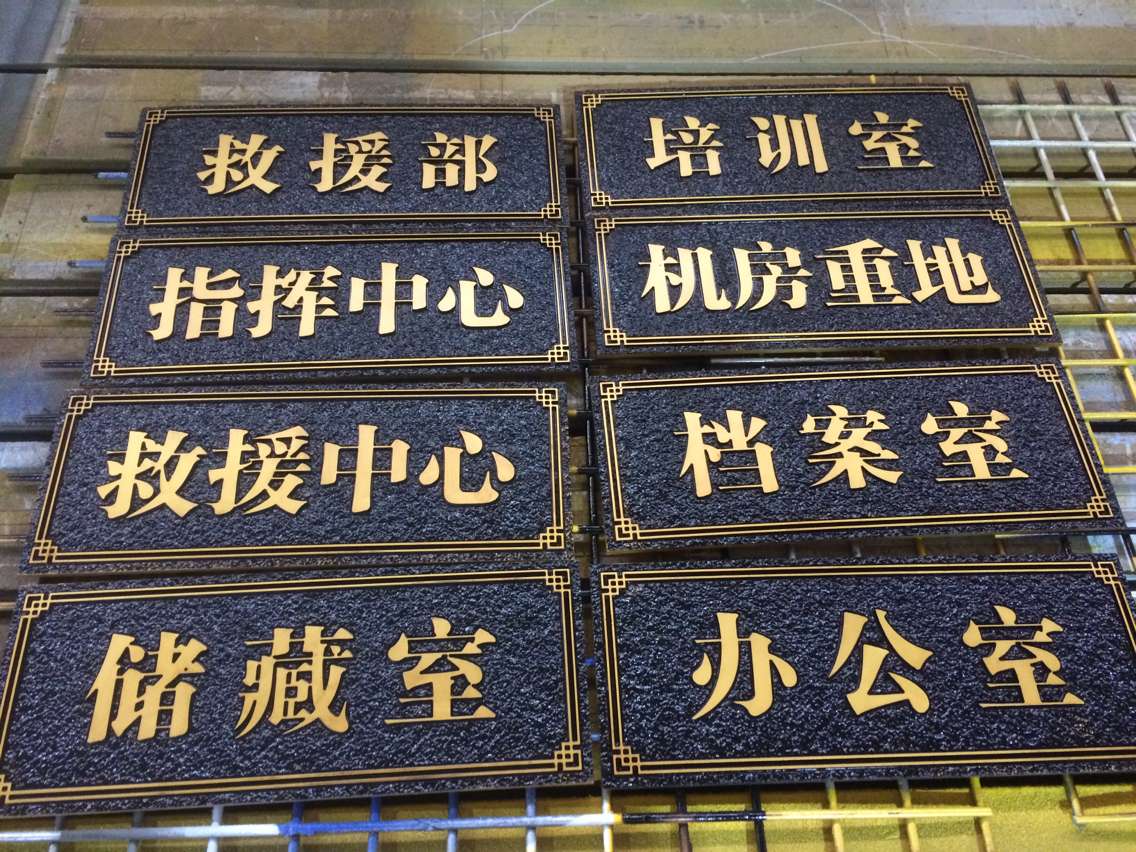 救援部
指挥中心
救援中心
储藏室
培训室
机房重地
档案室
办公室